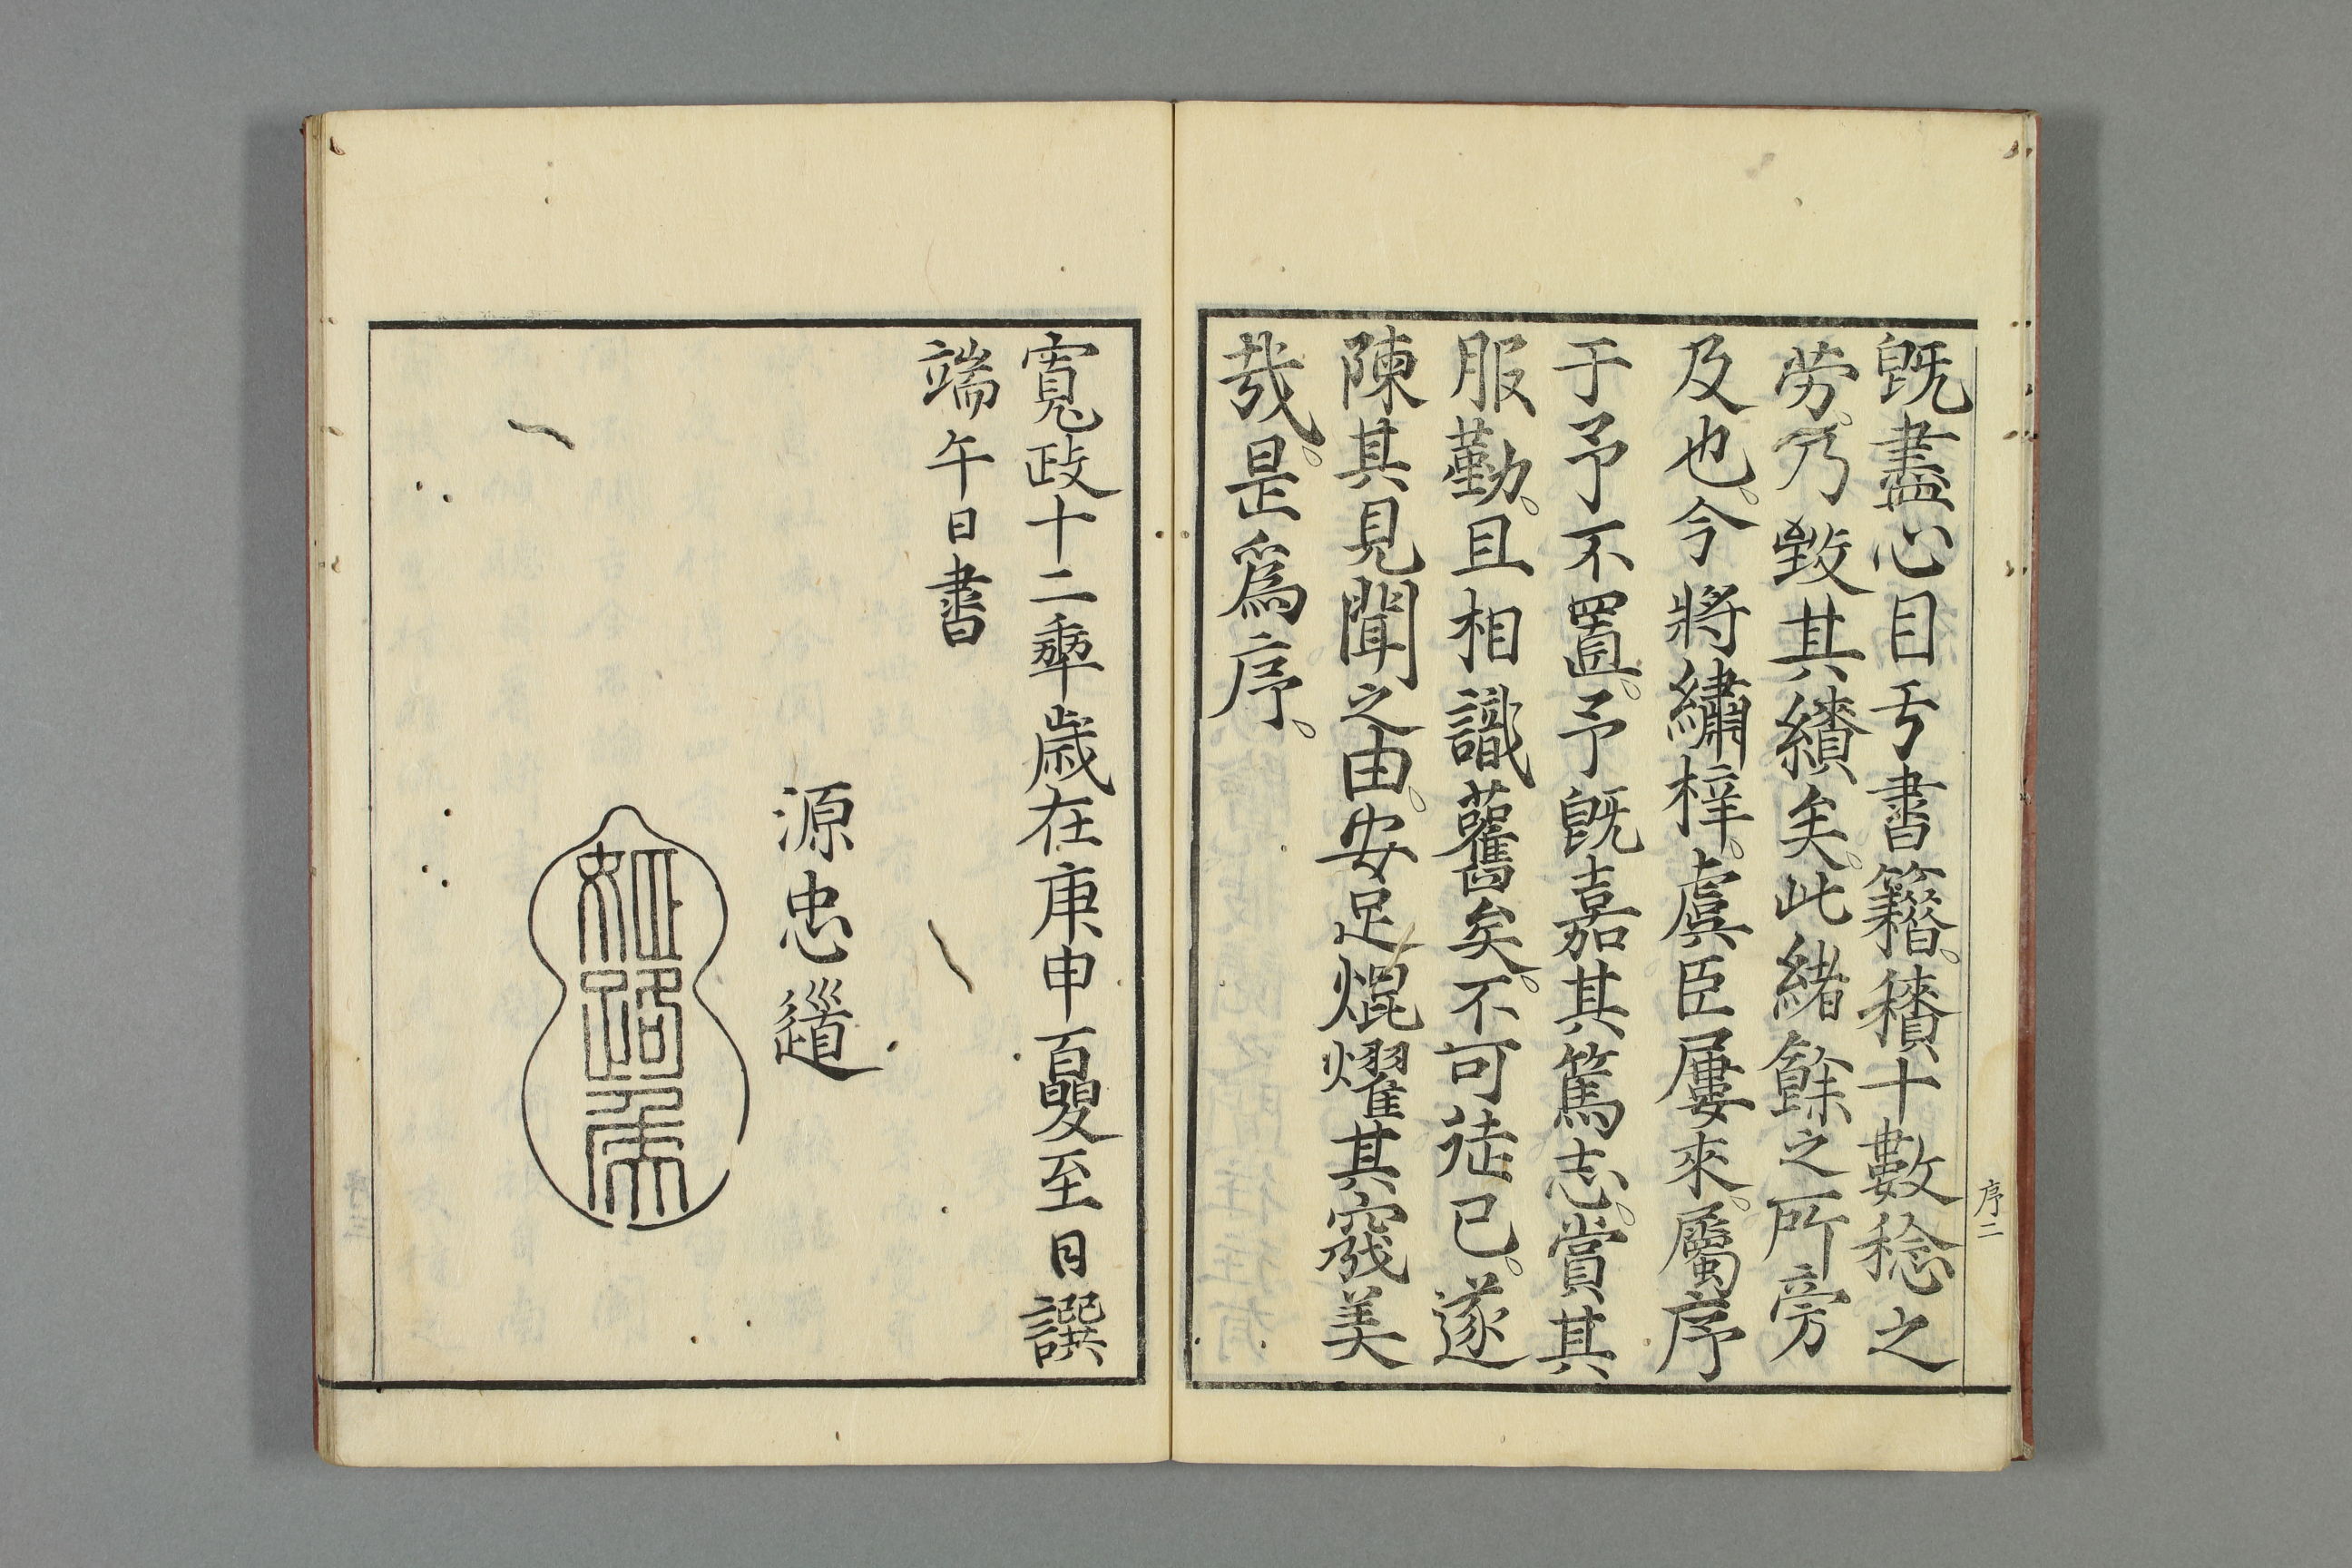 既盡心目于書籍。積十數稔之
勞。乃致其績矣。此緒餘之所旁
及也。今將繡梓。虞臣屢來。屬序
于予不置。予既嘉其篤志。賞其
服勤。且相識舊矣。不可徒已。遂
陳其見聞之由。安足焜燿其美
哉。是爲序。
序二
寬政十二年歲在庚申夏至日譔
端午日書
源忠道